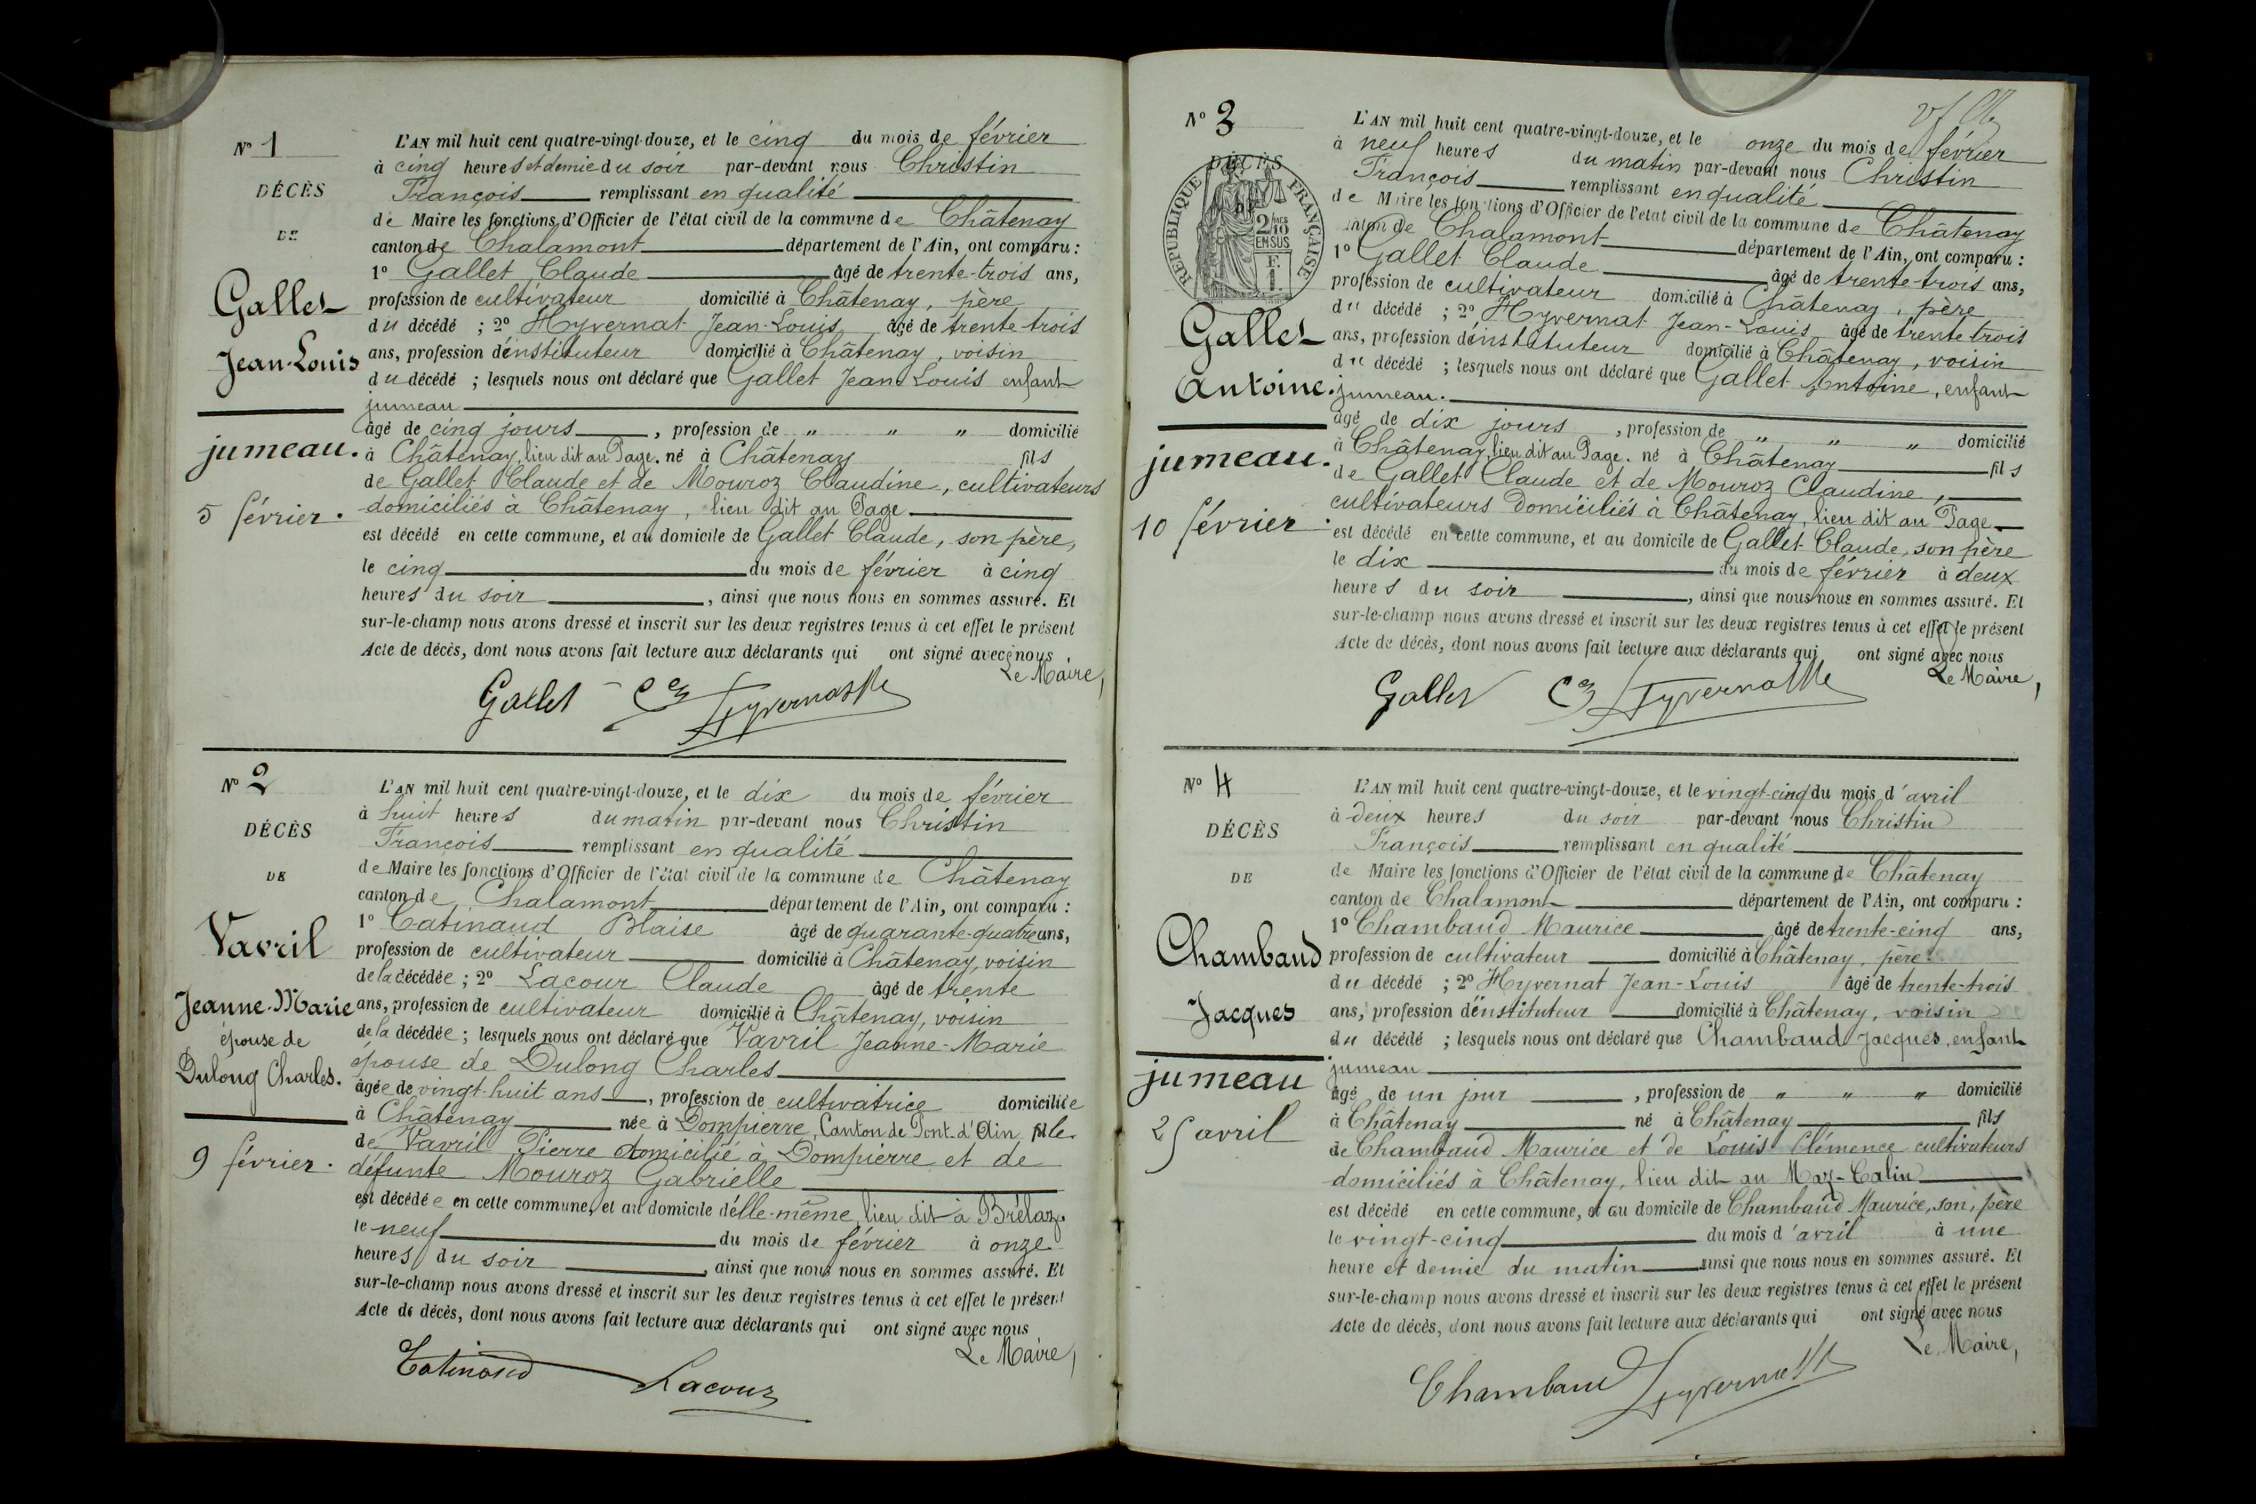 N° 1
DÉCÈS
DE
Gallet
Jean-Louis
jumeau.
5 février.
L'AN mil huit cent quatre-vingt-douze, et le cinq du mois de février
à cinq heures et demie du soir par-devant nous Christin
François remplissant en qualité
de Maire les fonctions d'Officier de l'état civil de la commune de Châtenay
canton de Chalamont département de l'Ain, ont comparu :
1° Gallet Claude âgé de trente-trois ans,
profession de cultivateur domicilié à Châtenay, père
du décédé ; 2° Hyvernat Jean-Louis âgé de trente-trois
ans, profession d'instituteur domicilié à Châtenay, voisin
du décédé ; lesquels nous ont déclaré que Gallet Jean-Louis enfant
jumeau
âgé de cinq jours, profession de " " " domicilié
à Châtenay, lieu dit au Page. né à Châtenay fils
de Gallet Claude et de Mouroz Claudine, cultivateurs
domiciliés à Châtenay, lieu dit au Page
est décédé en cette commune, et au domicile de Gallet Claude, son père,
le cinq du mois de février à cinq
heures du soir, ainsi que nous nous en sommes assuré. Et
sur-le-champ nous avons dressé et inscrit sur les deux registres tenus à cet effet le présent
Acte de décès, dont nous avons fait lecture aux déclarants qui ont signé avec nous
Le Maire,
Gallet Hyvernat
N° 2
DÉCÈS
DE
Vavril
Jeanne-Marie
épouse de
Dulong Charles.
9 février.
L'AN mil huit cent quatre-vingt-douze, et le dix du mois de février
à huit heures du matin par-devant nous Christin
François remplissant en qualité
de Maire les fonctions d'Officier de l'état civil de la commune de Châtenay
canton de Chalamont département de l'Ain, ont comparu :
1° Catinaud Blaise âgé de quarante-quatre ans,
profession de cultivateur domicilié à Châtenay, voisin
de la décédée ; 2° Lacour Claude âgé de trente
ans, profession de cultivateur domicilié à Châtenay, voisin
de la décédée ; lesquels nous ont déclaré que Vavril Jeanne-Marie
épouse de Dulong Charles
âgée de vingt-huit ans, profession de cultivatrice domiciliée
à Châtenay née à Dompierre, Canton de Pont-d'Ain, fille
de Vavril Pierre domicilié à Dompierre et de
défunte Mouroz Gabrielle
est décédée en cette commune, et au domicile d'elle-même, lieu dit à Brélaz
le neuf du mois de février à onze
heures du soir, ainsi que nous nous en sommes assuré. Et
sur-le-champ nous avons dressé et inscrit sur les deux registres tenus à cet effet le présent
Acte de décès, dont nous avons fait lecture aux déclarants qui ont signé avec nous
Le Maire,
Catinaud Lacour
N° 3
DÉCÈS
RÉPUBLIQUE FRANÇAISE
2 DÉCIMES 2/10 EN SUS
F. 1.
Gallet
Antoine.
jumeau.
10 février.
L'AN mil huit cent quatre-vingt-douze, et le onze du mois de février
à neuf heures du matin par-devant nous Christin
François remplissant en qualité
de Maire les fonctions d'Officier de l'état civil de la commune de Châtenay
canton de Chalamont département de l'Ain, ont comparu :
1° Gallet Claude âgé de trente-trois ans,
profession de cultivateur domicilié à Châtenay, père
du décédé ; 2° Hyvernat Jean-Louis âgé de trente-trois
ans, profession d'instituteur domicilié à Châtenay, voisin
du décédé ; lesquels nous ont déclaré que Gallet Antoine, enfant
jumeau.
âgé de dix jours, profession de " " " domicilié
à Châtenay, lieu dit au Page. né à Châtenay fils
de Gallet Claude et de Mouroz Claudine,
cultivateurs domiciliés à Châtenay, lieu dit au Page
est décédé en cette commune, et au domicile de Gallet Claude, son père
le dix du mois de février à deux
heures du soir, ainsi que nous nous en sommes assuré. Et
sur-le-champ nous avons dressé et inscrit sur les deux registres tenus à cet effet le présent
Acte de décès, dont nous avons fait lecture aux déclarants qui ont signé avec nous
Le Maire,
Gallet Hyvernat
N° 4
DÉCÈS
DE
Chambaud
Jacques
jumeau
25 avril
L'AN mil huit cent quatre-vingt-douze, et le vingt-cinq du mois d'avril
à deux heures du soir par-devant nous Christin
François remplissant en qualité
de Maire les fonctions d'Officier de l'état civil de la commune de Châtenay
canton de Chalamont département de l'Ain, ont comparu :
1° Chambaud Maurice âgé de trente-cinq ans,
profession de cultivateur domicilié à Châtenay, père
du décédé ; 2° Hyvernat Jean-Louis âgé de trente-trois
ans, profession d'instituteur domicilié à Châtenay, voisin
du décédé ; lesquels nous ont déclaré que Chambaud Jacques, enfant
jumeau
âgé de un jour, profession de " " " domicilié
à Châtenay né à Châtenay fils
de Chambaud Maurice et de Louis Clémence cultivateurs
domiciliés à Châtenay, lieu dit au Maz-Calin
est décédé en cette commune, et au domicile de Chambaud Maurice, son père
le vingt-cinq du mois d'avril à une
heure et demie du matin ainsi que nous nous en sommes assuré. Et
sur-le-champ nous avons dressé et inscrit sur les deux registres tenus à cet effet le présent
Acte de décès, dont nous avons fait lecture aux déclarants qui ont signé avec nous
Le Maire,
Chambaud Hyvernat